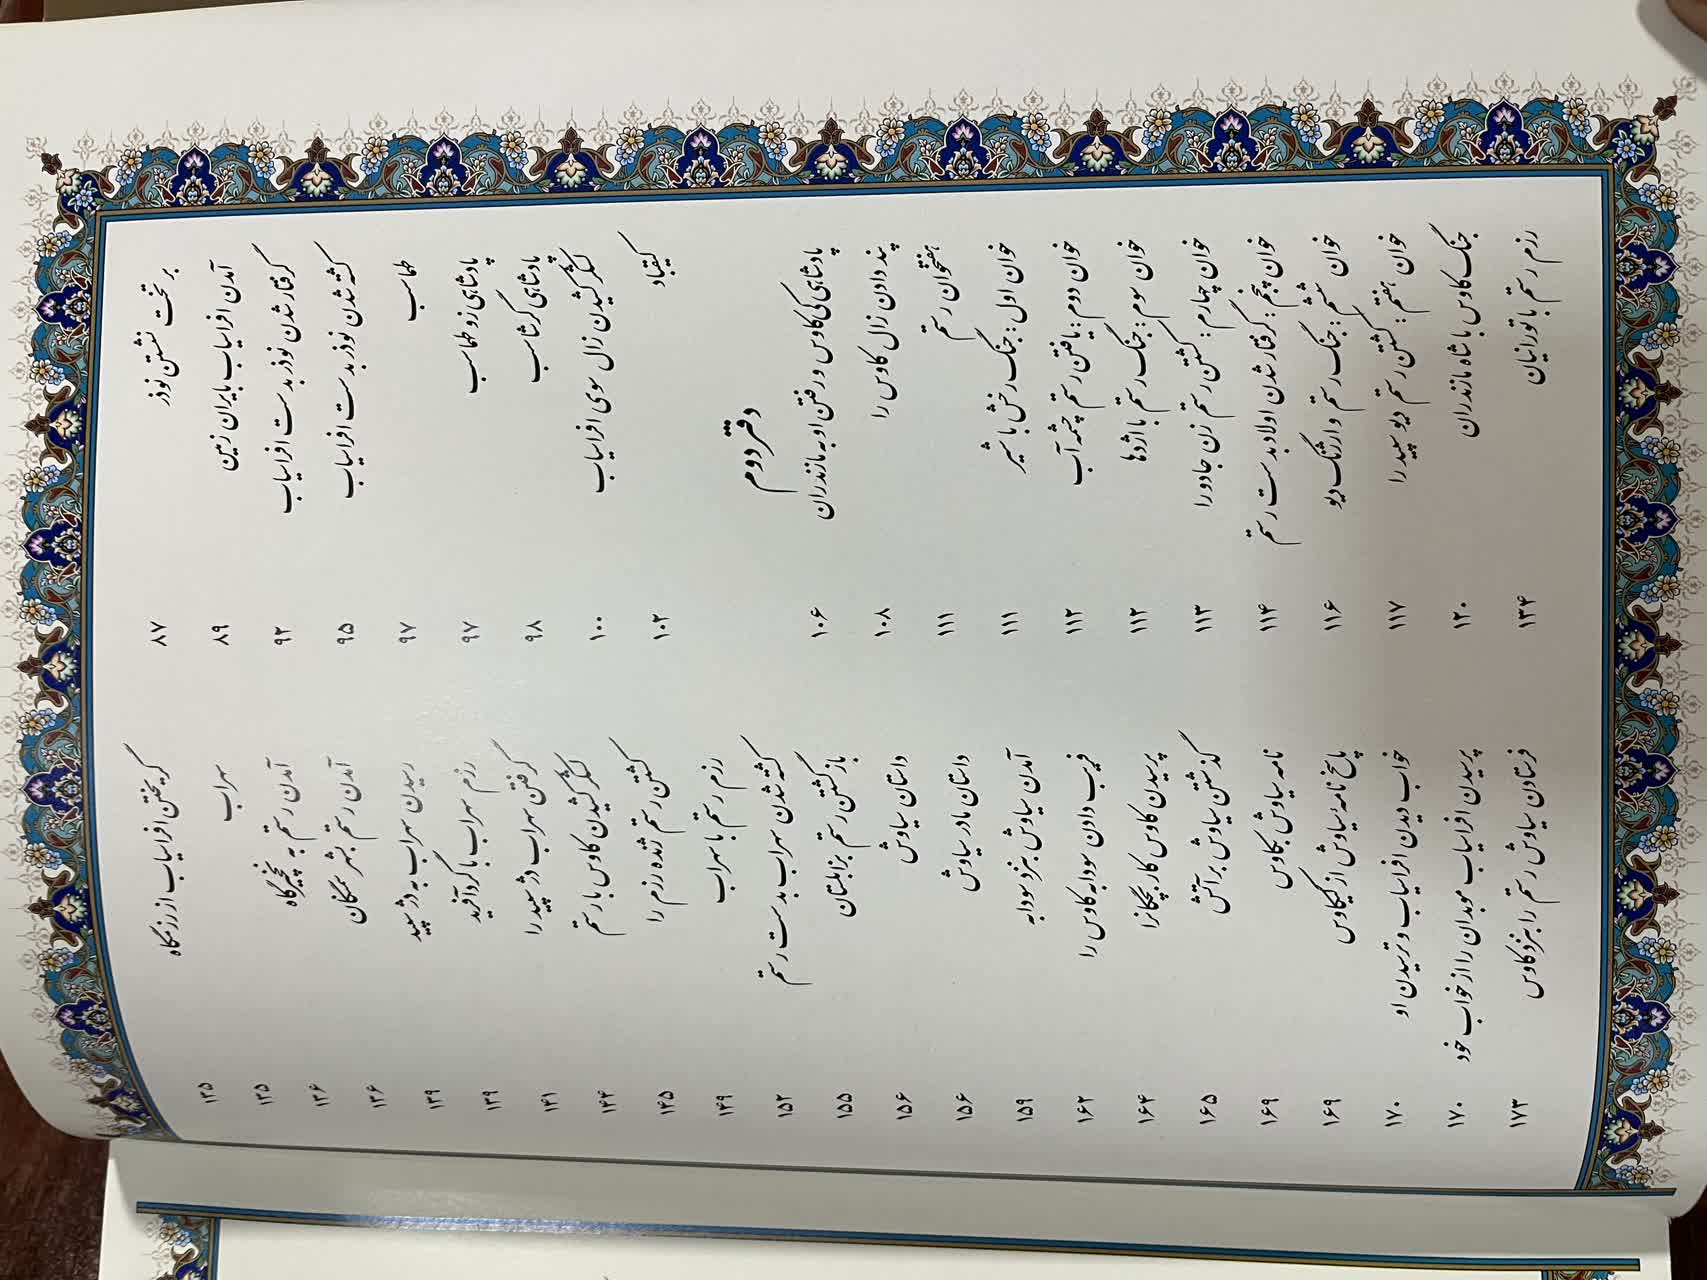 بر تخت نشستن نوذر ۸۷
آمدن افراسیاب بایران زمین ۸۹
گرفتار شدن نوذر بدست افراسیاب ۹۲
کشته شدن نوذر بدست افراسیاب ۹۵
طهماسب ۹۷
پادشاهی زو طهماسب ۹۷
پادشاهی گرشاسب ۹۸
لشکر کشیدن زال سوی افراسیاب ۱۰۰
کیقباد ۱۰۲
دفتر دوم
پادشاهی کی‌کاوس و رفتن او به مازندران ۱۰۶
پند دادن زال کاوس را ۱۰۸
هفتخوان رستم ۱۱۱
خوان اول: جنگ رخش با شیر ۱۱۱
خوان دوم: یافتن رستم چشمه آب ۱۱۲
خوان سوم: جنگ رستم با اژدها ۱۱۲
خوان چهارم: کشتن رستم زن جادو را ۱۱۳
خوان پنجم: گرفتار شدن اولاد بدست رستم ۱۱۴
خوان ششم: جنگ رستم و ارژنگ دیو ۱۱۶
خوان هفتم: کشتن رستم دیو سپید را ۱۱۷
جنگ کاوس با شاه مازندران ۱۲۰
رزم رستم با تورانیان ۱۳۴
گریختن افراسیاب از رزمگاه ۱۳۵
سهراب ۱۳۵
آمدن رستم به نخجیرگاه ۱۳۶
آمدن رستم بشهر سمنگان ۱۳۶
رسیدن سهراب به دژ سپید ۱۳۹
رزم سهراب با گردآفرید ۱۳۹
گرفتن سهراب دژ سپید را ۱۴۱
لشکر کشیدن کاوس با رستم ۱۴۴
کشتن رستم ژنده رزم را ۱۴۵
رزم رستم با سهراب ۱۴۹
کشته شدن سهراب بدست رستم ۱۵۲
بازگشتن رستم بزابلستان ۱۵۵
داستان سیاوش ۱۵۶
داستان مادر سیاوش ۱۵۶
آمدن سیاوش بنزد سودابه ۱۵۹
فریب دادن سودابه کاوس را ۱۶۲
پرسیدن کاوس کار بچگانرا ۱۶۴
گذشتن سیاوش بر آتش ۱۶۵
نامه سیاوش بکاوس ۱۶۹
پاسخ نامه سیاوش از کیکاوس ۱۶۹
خواب دیدن افراسیاب و ترسیدن او ۱۷۰
پرسیدن افراسیاب موبدان را از خواب خود ۱۷۰
فرستادن سیاوش رستم را بنزد کاوس ۱۷۳